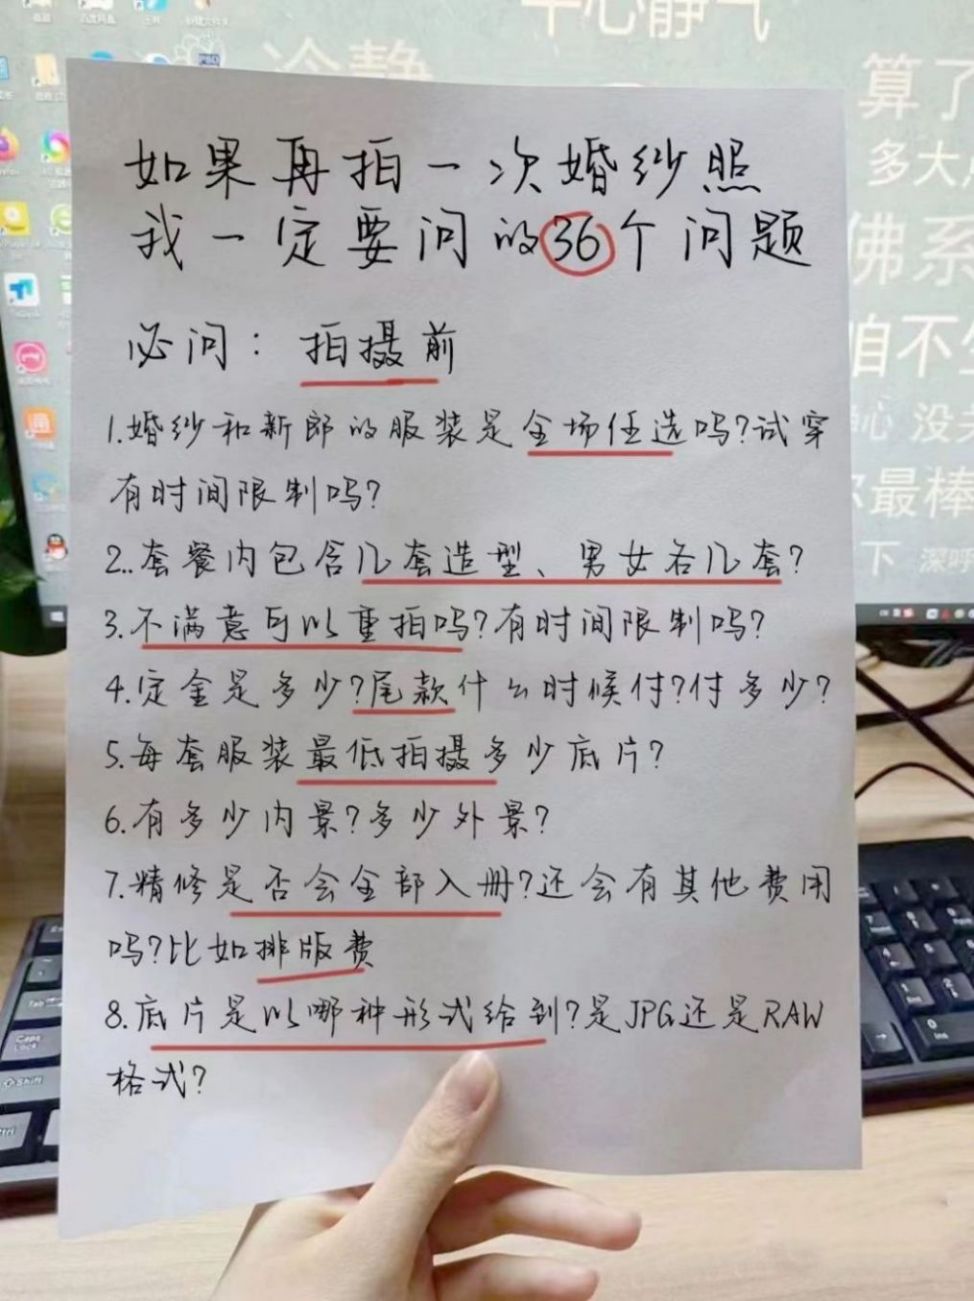 平心静气
冷静
算了
多大
佛系
咱不生
没
最棒
下 深呼
如果再拍一次婚纱照
我一定要问的36个问题
必问：拍摄前
1.婚纱和新郎的服装是全场任选吗?试穿
有时间限制吗?
2..套餐内包含几套造型、男女各几套?
3.不满意可以重拍吗?有时间限制吗?
4.定金是多少?尾款什么时候付?付多少?
5.每套服装最低拍摄多少底片?
6.有多少内景?多少外景?
7.精修是否会全部入册?还会有其他费用
吗?比如排版费
8.底片是以哪种形式给到?是JPG还是RAW
格式?
Caps
Lock
Shift
Ins